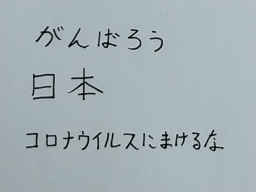 がんばろう
日本
コロナウイルスにまけるな